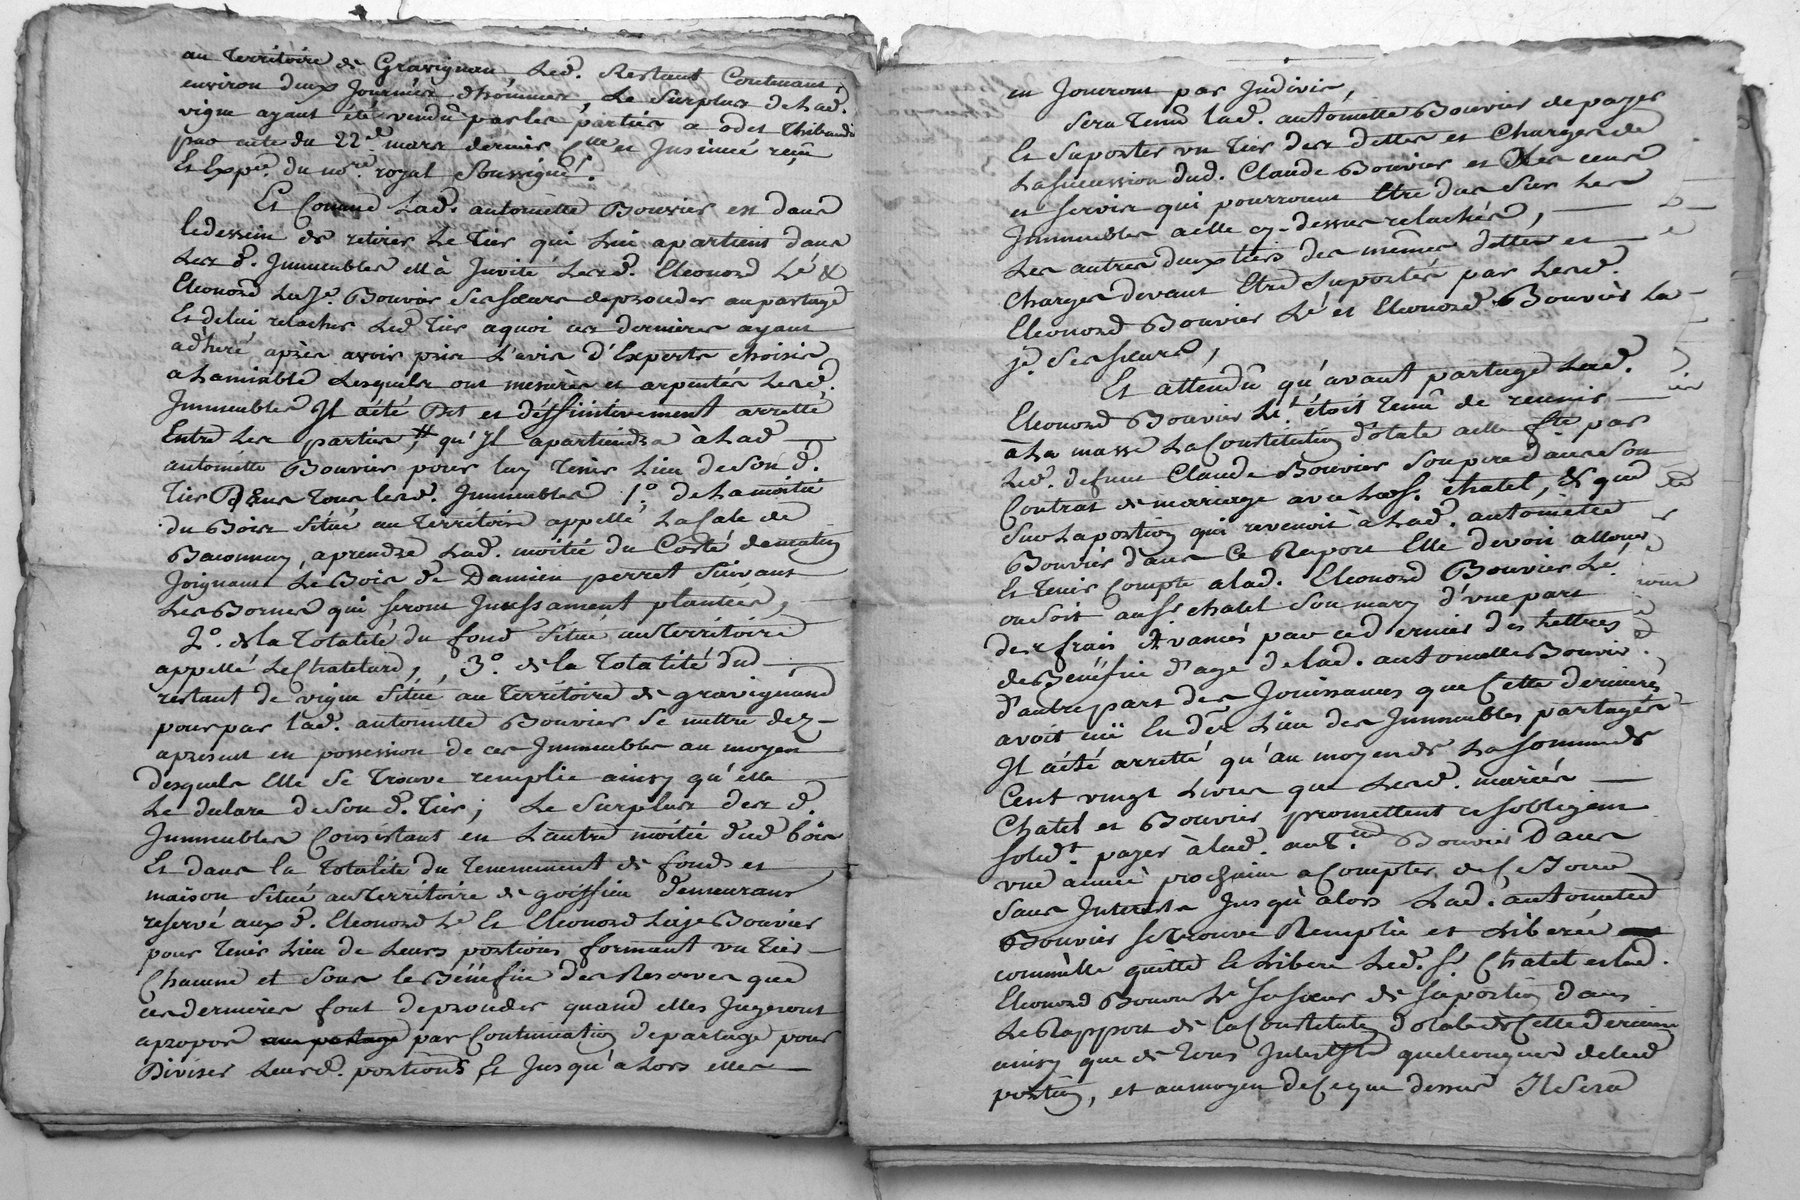 au Territoire de Gravignan, Led. Restant Contenant
environ deux Journées d'hommes, Le Surplus de Lad.
vigne ayant été vendu par les parties a odet Thibaudi
par acte du 22e. mars dernier Clle et Insinué reçu
Et Expé. du nore. royal Soussigné.
Et Comme Lad. antoinette Bouvier est dans
le dessein de retirer Le Tier qui Lui apartient dans
Lesd. Immeubles ell'à Invité Lesd. Eleonord L'é &
Eleonord La je. Bouvier Ses sœurs de proceder au partage
Et de lui relacher Led. Tier a quoi ces dernieres ayant
adheré, après avoir pris L'avis d'Experts choisis
a Lamiable Lesquels ont mesurés et arpentés Lesd.
Immeubles Il a été Dit et déffinitivement arretté
Entre Les parties, # qu'Il apartiendra à Lad
antoinette Bouvier pour luy Tenir Lieu de Son d.
Tier Dans Tous Lesd. Immeubles 1°. de La moitié
du Bois Situé au Territoire appellé La Cale de
aprendre Lad. moitié du Costé de matin
Joignant Le Bois de Damien perret Suivant
Les Bornes qui Seront Incessament plantées,
2°. de la Totalité du fond Situé au Territoire
appellé Le Chatelard, 3°. de la Totalité dud
restant de vigne Situé au Territoire de gravignand
pour par Lad. antoinette Bouvier Se mettre dez-
apresent en possession de ces Immeubles au moyen
desquels Elle Se Trouve remplie ainsy qu'elle
Le dulare de Son d. Tier; Le Surplus des d.
Immeubles Consistant en L'autre moitié dud bois
Et dans la Totalité du Tenemment de fonds et
maison Situé au Territoire de goiffieu demeurans
reservé aux d. Eleonord L'é Et Eleonord La je Bouvier
pour Tenir Lieu de Leurs portions formant un Tier
Chacune et Sous le Bénéfice des Reserves que
ces dernieres font de proceder quand elles Jugeront
apropos au partage par Continuation de partage pour
Diviser Leursd. portions Et Jusqu'à Lors elles
en Jouiront par Indivis,
Sera Tenu Lad. antoinette Bouvier de payer
Et Suporter un Tier des dettes et Charges de
La Succession dud. Claude Bouvier et des cens
et Servis qui pourroient Etre dus Sur Les
Immeubles a elle cy-dessus relachés,
Les autres deux tiers des mêmes dettes et
Charges devant Etre Suportés par Lesd.
Eleonord Bouvier L'é et Eleonord Bouvier La
je. Ses sœurs,
Et attendu qu'avant partage Lad.
Eleonord Bouvier L'é étoit Tenue de reunir
à La masse La Constitution dotale a elle fte par
Led. defunt Claude Bouvier Son pere dans Son
Contrat de mariage avec Led. S. Chatel, & que
Sur La portion qui revenoit à Lad. antoinette
Bouvier dans Ce Raport Elle devoit allouer
Et Tenir Compte a lad. Eleonord Bouvier L'é
ou Soit au S. Chatel Son mary d'une part
des frais Avancés par ce dernier des Lettres
de Bénéfice d'age de lad. antoinette Bouvier.
d'autre part des Jouissances que Cette derniere
avoit eü En der Lieu des Immeubles partagés
Il a été arretté qu'au moyen de La Somme de
Cent vingt Livres que Lesd. mariés
Chatel et Bouvier promettent et s'obligent
solidt. payer à lad. antte. Bouvier Dans
une année prochaine a Compter de Ce Jour
Sans Interets Jusqu'à lors Lad. antoinette
Bouvier Se Trouve Remplie et Liberée
comm'elle quitte Et Libere Led. S. Chatel et lad.
Eleonord Bouvier L'é Sa Sœur de Sa portion dans
Le Rapport de la Constitution dotale de Cette derniere
ainsy que de Tous Interets quelconques de lad
portion, et au moyen de Ce que dessus Il Sera